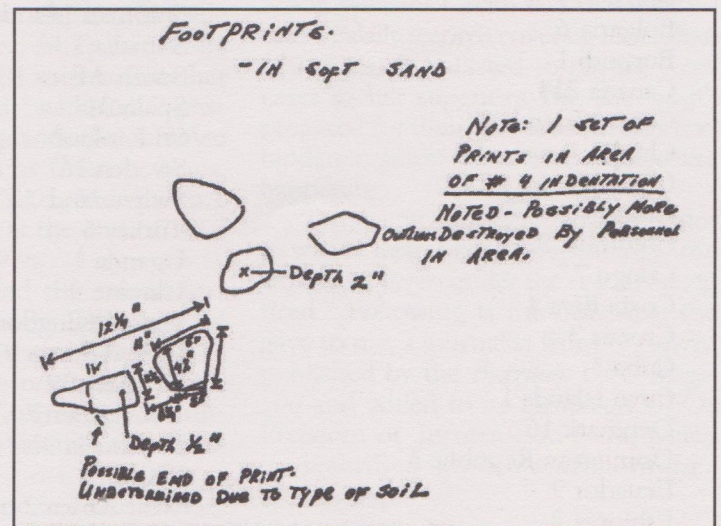 FOOTPRINTS.
- IN SOFT SAND
NOTE: 1 SET OF
PRINTS IN AREA
OF # 4 INDENTATION
NOTED - POSSIBLY MORE
DESTROYED BY PERSONNEL
IN AREA.
DEPTH 2"
12 1/4"
DEPTH 1/2"
POSSIBLE END OF PRINT.
UNDETERMINED DUE TO TYPE OF SOIL